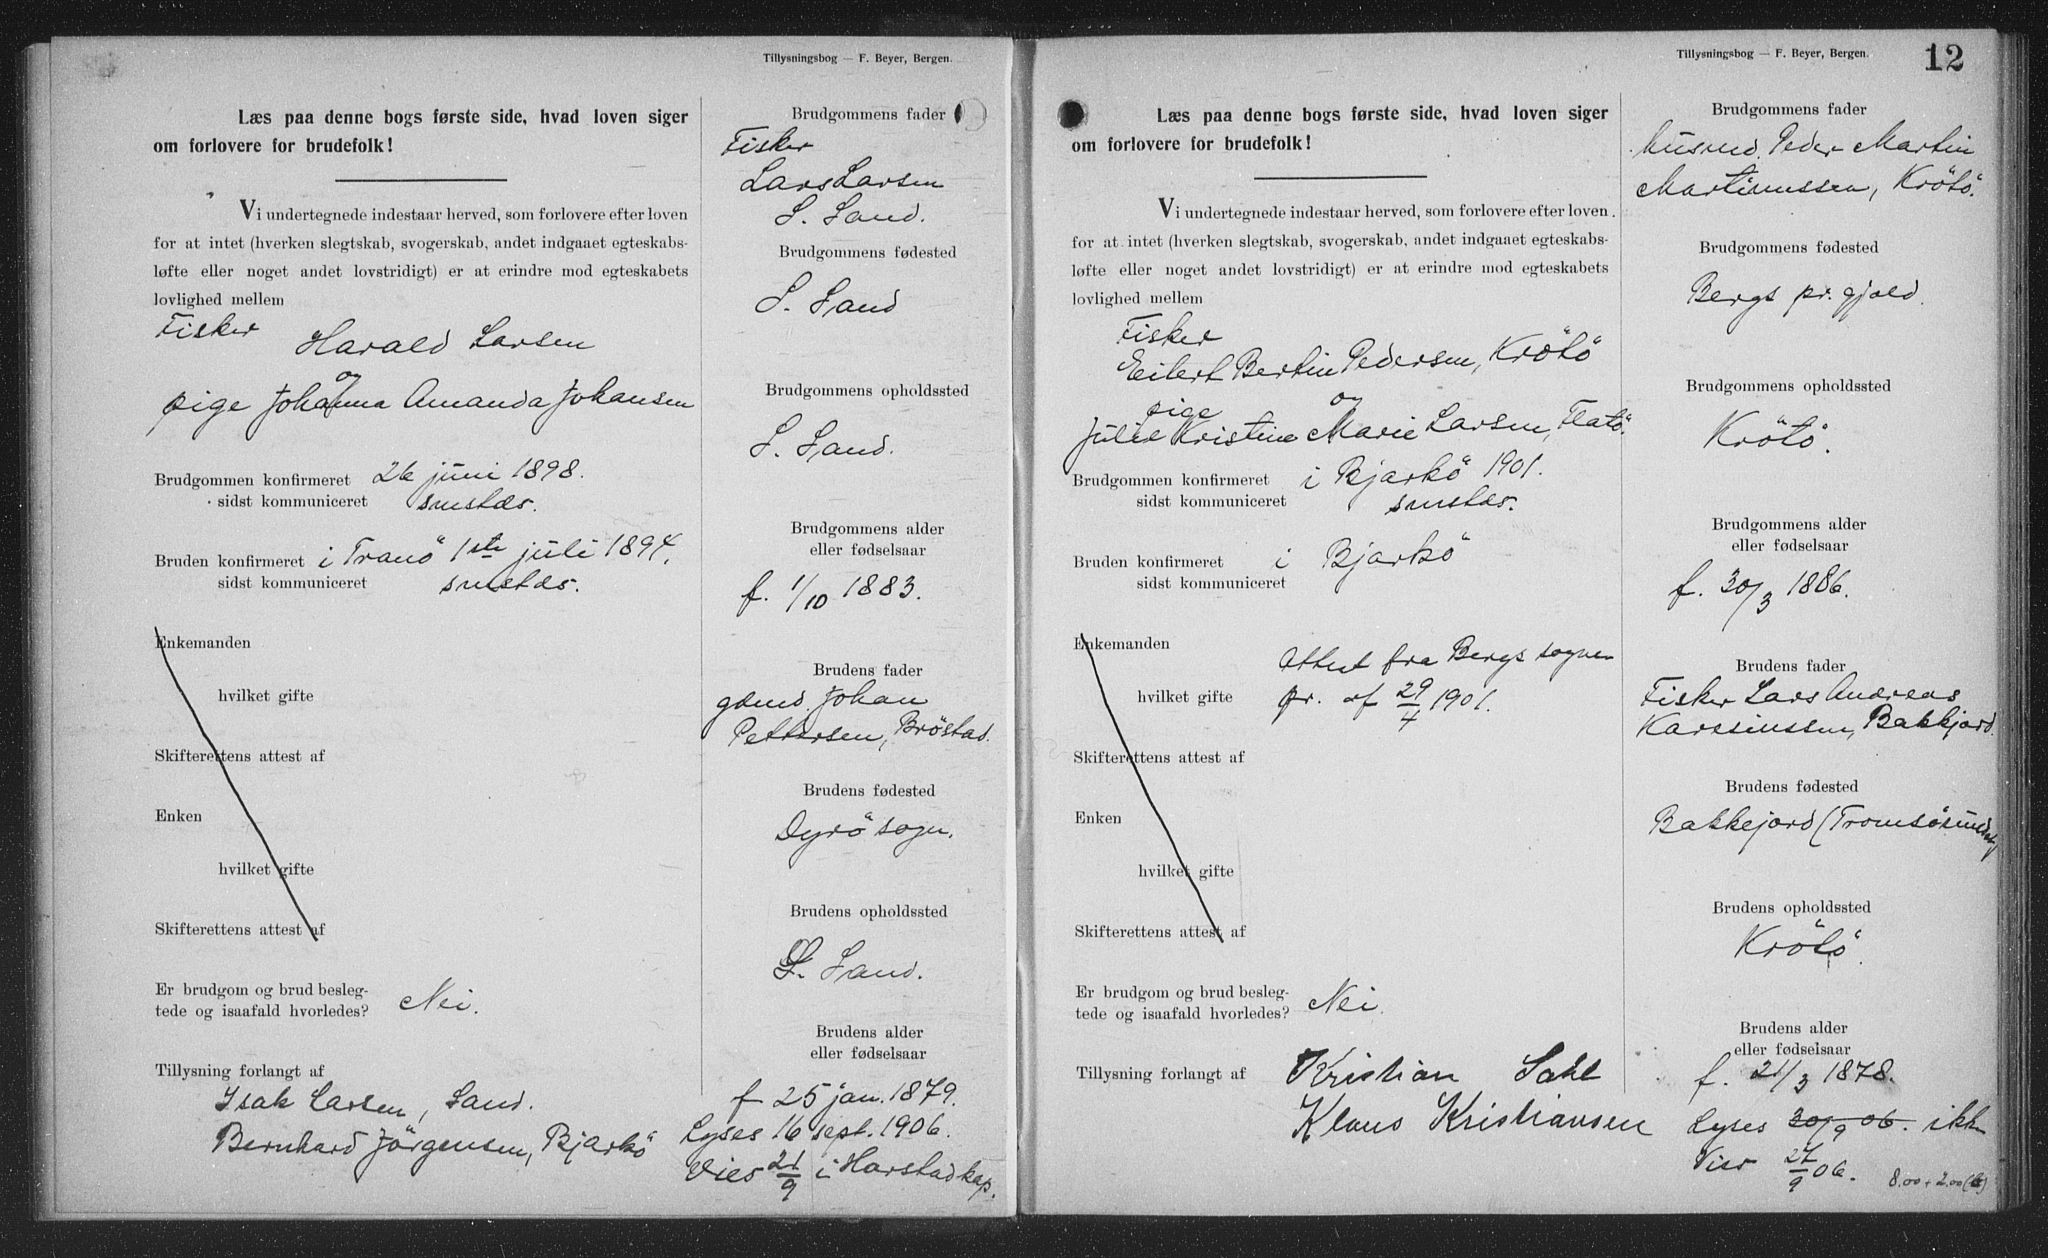 Tillysningbog — F. Beyer, Bergen.
Læs paa denne bogs første side, hvad loven siger
om forlovere for brudefolk!
Vi undertegnede indestaar herved, som forlovere efter loven
for at intet (hverken slegtskab, svogerskab, andet indgaaet egteskabs-
løfte eller noget andet lovstridigt) er at erindre mod egteskabets
lovlighed mellem
Fisker
Harald Larsen
og
pige Johanna Amanda Johansen
Brudgommen konfirmeret 26 juni 1898.
sidst kommuniceret smstds.
Bruden konfirmeret i Tranö 1ste juli 1894.
sidst kommuniceret smstds.
Enkemanden
hvilket gifte
Skifterettens attest af
Enken
hvilket gifte
Skifterettens attest af
Er brudgom og brud besleg-
tede og isaafald hvorledes? Nei.
Tillysning forlangt af
Isak Larsen, Sand.
Bernhard Jörgensen, Bjarkö
Brudgommens fader
Fisker
Lars Larsen
S. Sand.
Brudgommens fødested
S. Sand
Brudgommens opholdssted
S. Sand.
Brudgommens alder
eller fødselsaar
f. 1/10 1883.
Brudens fader
gdmd. Johan
Pettersen, Bröstad.
Brudens fødested
Dyrö sogn.
Brudens opholdssted
S. Sand.
Brudens alder
eller fødselsaar
f 25 jan. 1879.
Lyses 16 sept. 1906.
Vies 21/9 i Harstad kap.
Tillysningbog — F. Beyer, Bergen.
12
Læs paa denne bogs første side, hvad loven siger
om forlovere for brudefolk!
Vi undertegnede indestaar herved, som forlovere efter loven
for at intet (hverken slegtskab, svogerskab, andet indgaaet egteskabs-
løfte eller noget andet lovstridigt) er at erindre mod egteskabets
lovlighed mellem
Fisker
Eilert Bertin Pedersen, Krötö
og
pige
Julie Kristine Marie Larsen, Flatö.
Brudgommen konfirmeret i Bjarkö 1901.
sidst kommuniceret smstds.
Bruden konfirmeret i Bjarkö
sidst kommuniceret
Enkemanden
Attest fra Bergs sogne
hvilket gifte pr. af 29/4 1901.
Skifterettens attest af
Enken
hvilket gifte
Skifterettens attest af
Er brudgom og brud besleg-
tede og isaafald hvorledes? Nei.
Tillysning forlangt af Kristian Dahl
Klaus Kristiansen
Brudgommens fader
husmd. Peder Martin
Martinussen, Krötö.
Brudgommens fødested
Bergs pr. gjæld.
Brudgommens opholdssted
Krötö.
Brudgommens alder
eller fødselsaar
f. 30/3 1886.
Brudens fader
Fisker Lars Andreas
Karesinssen, Bakkjord.
Brudens fødested
Bakkejord (Tromsösundet)
Brudens opholdssted
Krötö.
Brudens alder
eller fødselsaar
f. 21/3 1878.
Lyses 30/9 06. ikke
Vies 27/9 06.
8.00 + 2.00